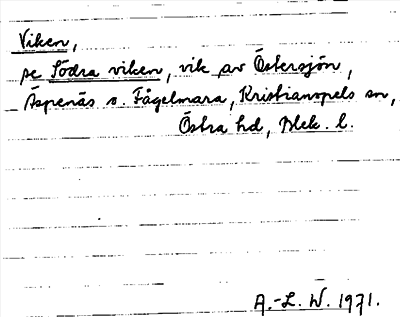 Viken,
se Södra viken, vik av Östersjön,
Äspenäs o. Fågelmara, Kristianopels sn,
Östra hd, Blek. l.
A.-L. W. 1971.